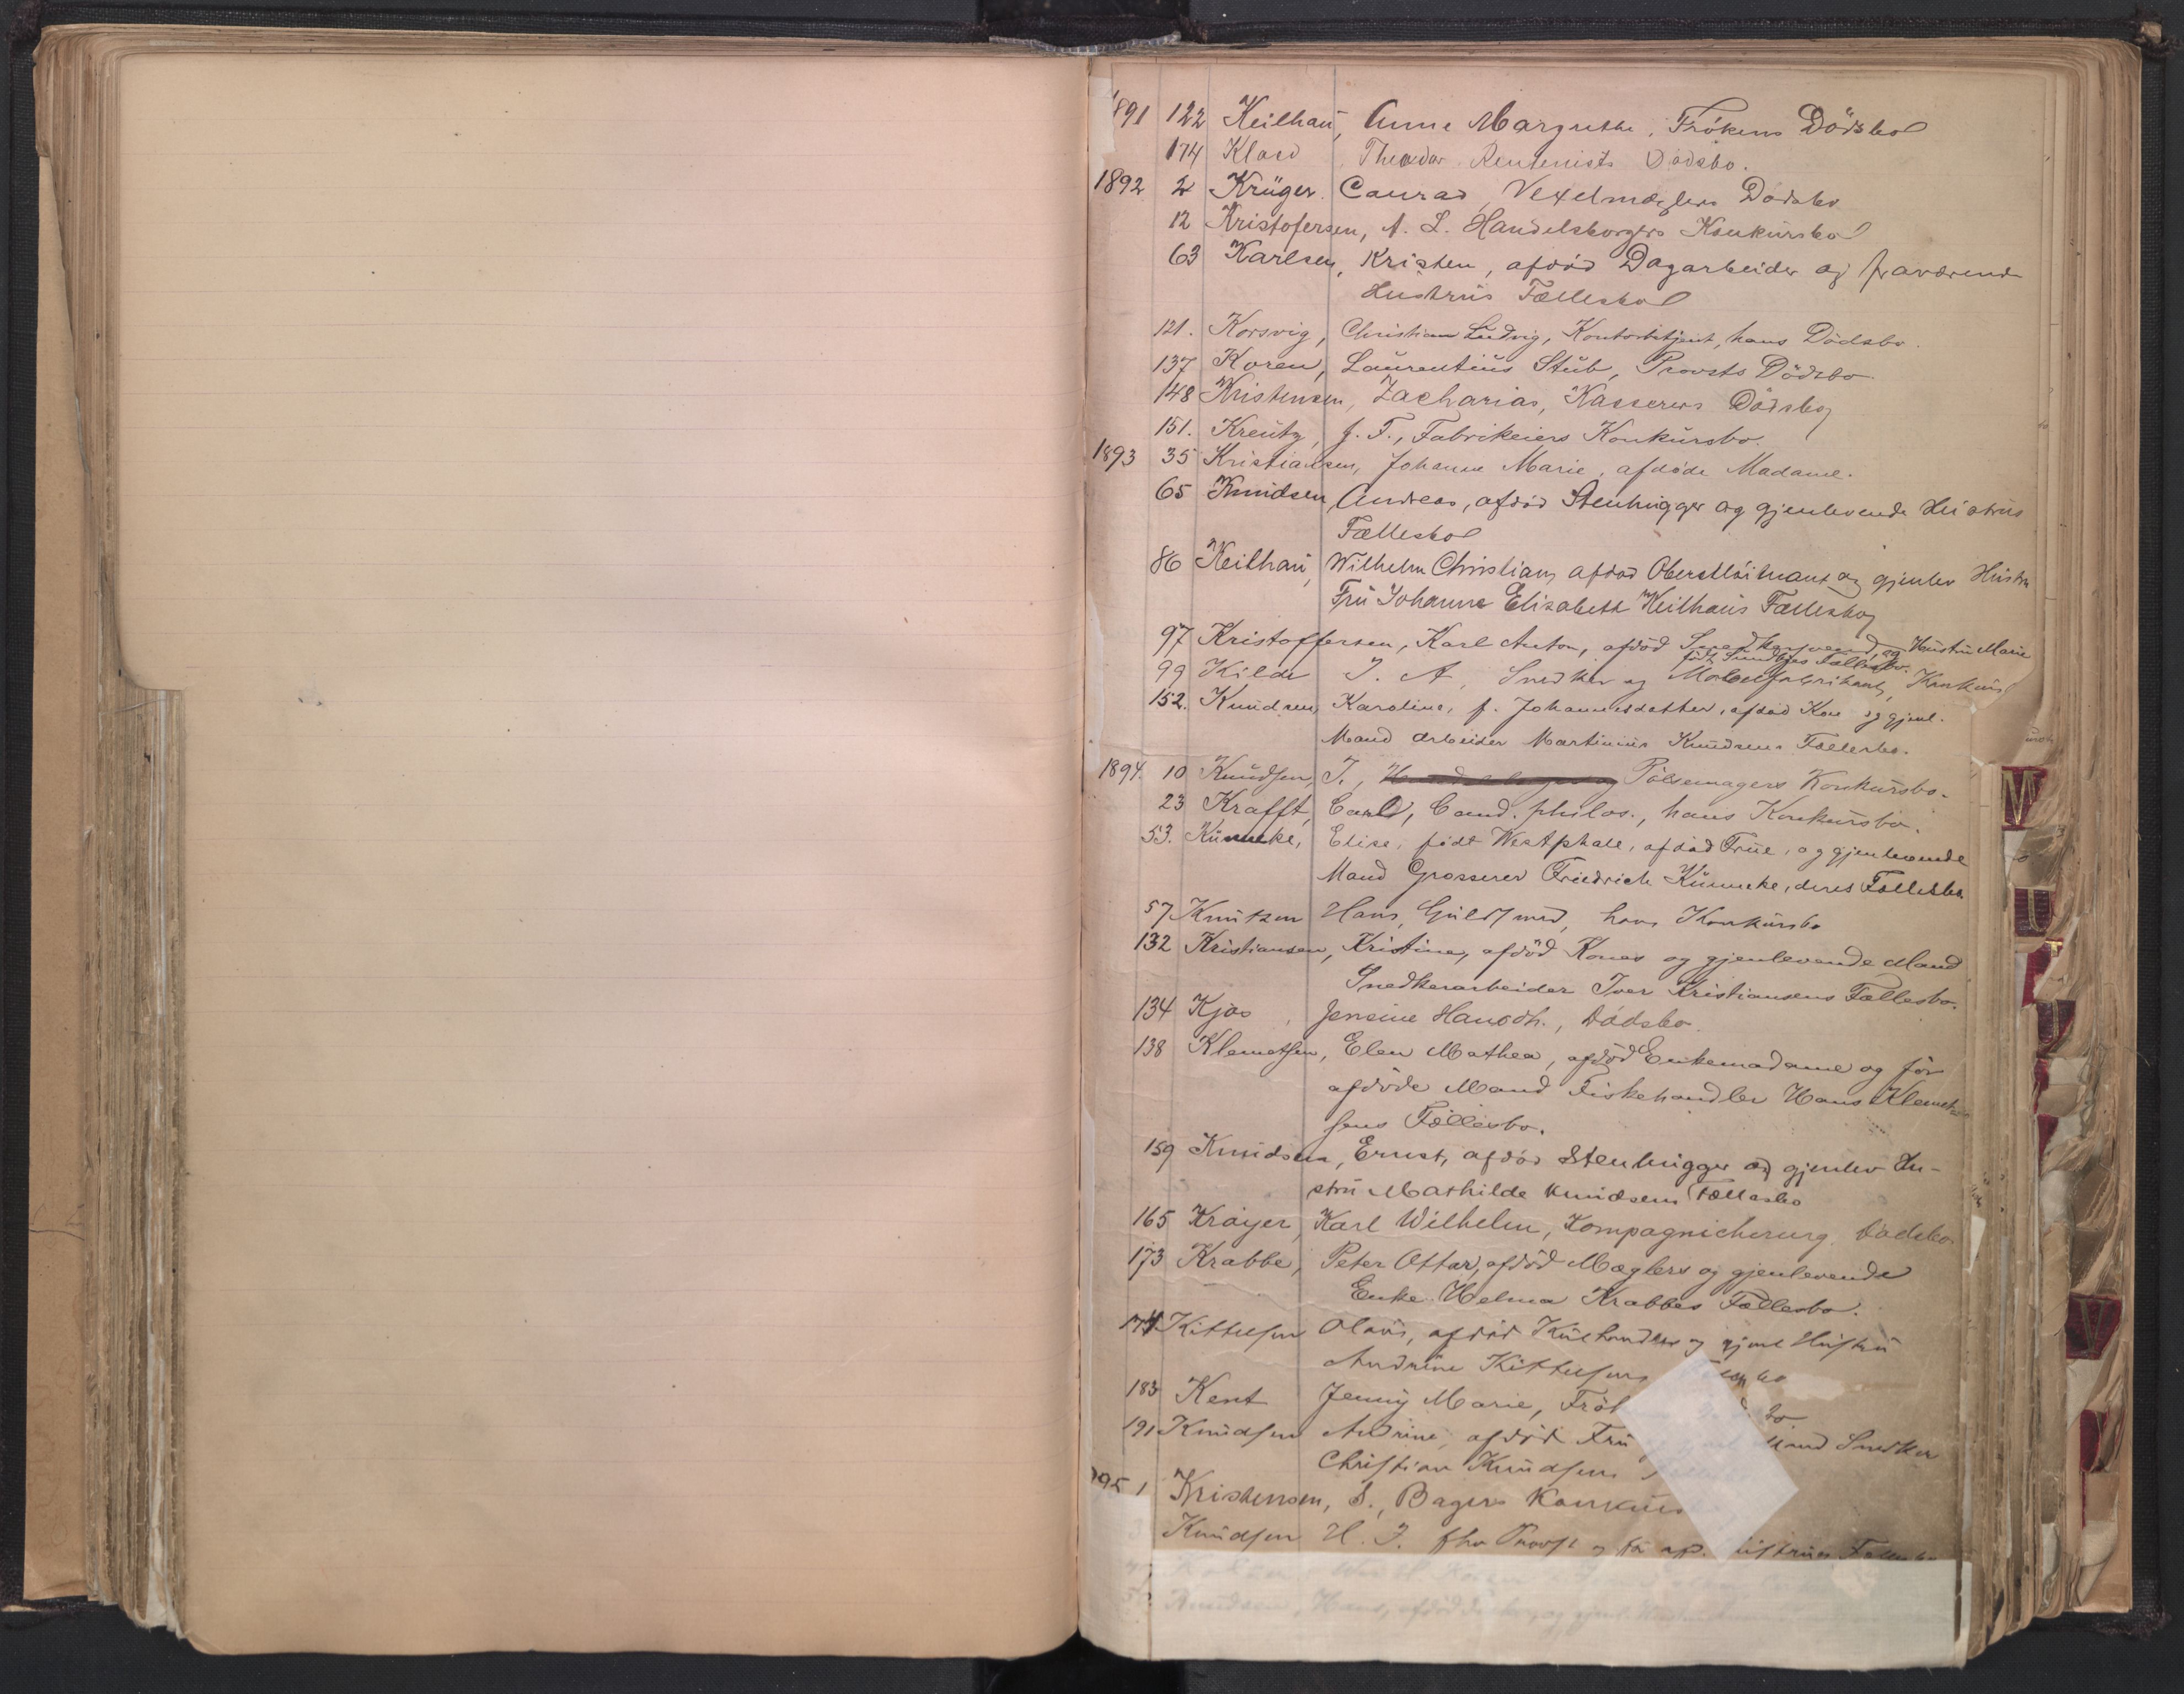 1891 122 Keilhau, Anne Margrethe, Frökens Dödsbo
174 Theodor Rentenists Dödsbo.
1892 2 Krüger. Conrad, Vexelmæglers Dödsbo
12 Kristofersen, A. L. Handelsborgers Konkursbo
63 Karlsen, Kristen, afdöd Dagarbeider og fraværende
Hustrus Fællesbo
121. Korsvig, Christian Ludvig, Kontorbetjent, hans Dödsbo.
137 Koren, Laurentius Stub, Provsts Dödsbo
148 Kristensen, Zacharias, Kasserers Dödsbo
151. Kreutz, J. F., Fabrikeiers Konkursbo.
1893 35 Kristiansen, Johanne Marie, afdöde Madame.
65 Knudsen, Andreas, afdöd Stenhugger og gjenlevende Hustrus
Fællesbo
86 Keilhau, Wilhelm Christian, afdöd Oberstlöitnant og gjenlev Hustru
Fru Johanne Elisabeth Keilhaus Fællesbo
97 Kristoffersen, Karl Anton, afdöd Snedkersvend, og Hustru Marie
födt Fællesbo.
99 Kilde J. A, Snedker og Möbelfabrikant, Konkurs
152. Knudsen, Karoline, f. Johannesdatter, afdöd Kone og gjenl.
Mand Arbeider Martinius Knudsens Fællesbo.
1894. 10 Knudsen, J., Pölsemagers Konkursbo.
23 Krafft, Carl, Cand. philos., hans Konkursbo.
53. Künneke, Elise, födt Westphale, afdöd Frue, og gjenlevende
Mand Grosserer Friedrich Künneke, deres Fællesbo
57 Knutsen Hans, Guldsmed, hans Konkursbo
132 Kristiansen, Kristine, afdöd Kones og gjenlevende Mand
Snedkerarbeider Iver Kristiansens Fællesbo.
134 Kjos, Jensine Hansdh., Dödsbo.
138 Klemetsen, Elen Mathea, afdöd Enkemadame og för
afdöde Mand Fiskehandler Hans Klemet
sens Fællesbo.
159 Knudsen, Ernst, afdöd Stenhugger og gjenlev Hu-
stru Mathilde Knudsens Fællesbo
165 Kröyer, Karl Wilhelm, Kompagnichirurg, Dödsbo
173 Krabbe, Peter Ottar, afdöd Mæglers og gjenlevende
Enke Helma Krabbes Fællesbo.
174 Kittelsen Olaus, afdöd og gjenl Hustru
Andrine Kittelsens
183 Kent Jenny Marie,
191 Knudsen Andrine, afdöd Mand Snedker
Christian Knudsens
1895 1 Kristensen, S., Bagers
Knudsen H. J. Provst og
Knudsen, Hans, afdöd